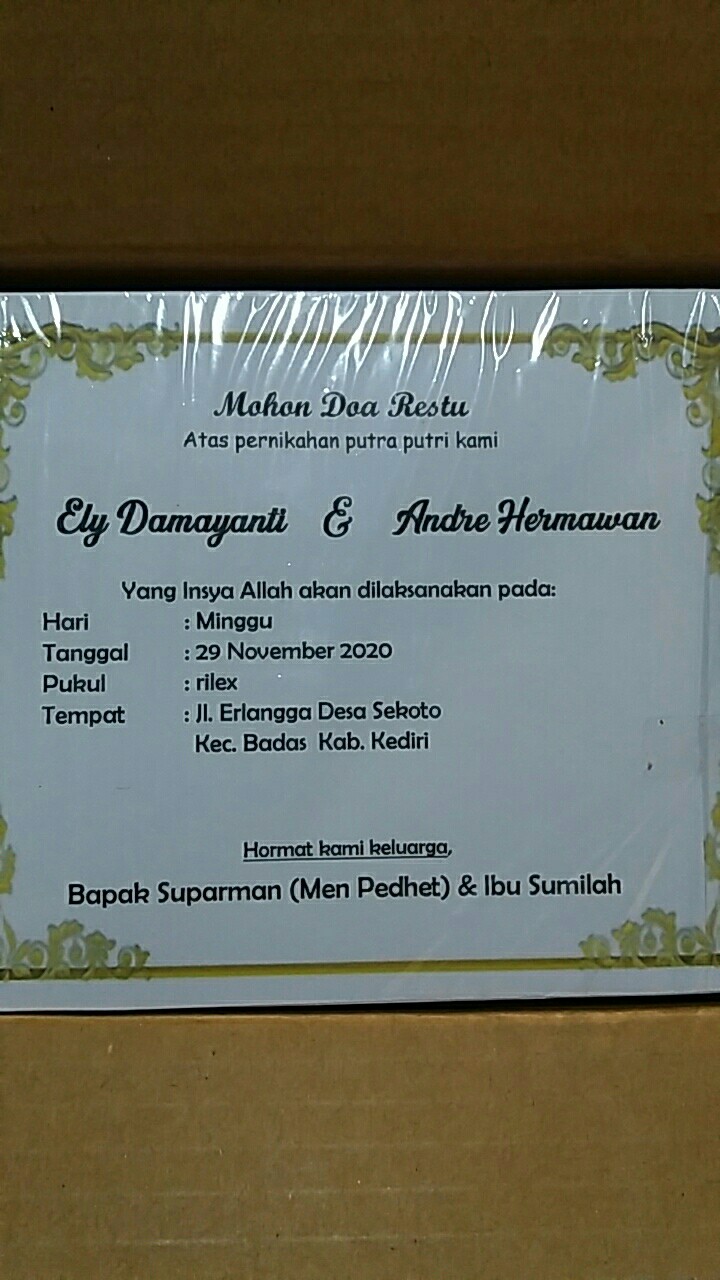 Mohon Doa Restu
Atas pernikahan putra putri kami
Ely Damayanti & Andre Hermawan
Yang Insya Allah akan dilaksanakan pada:
Hari : Minggu
Tanggal : 29 November 2020
Pukul : rilex
Tempat : Jl. Erlangga Desa Sekoto
Kec. Badas Kab. Kediri
Hormat kami keluarga,
Bapak Suparman (Men Pedhet) & Ibu Sumilah